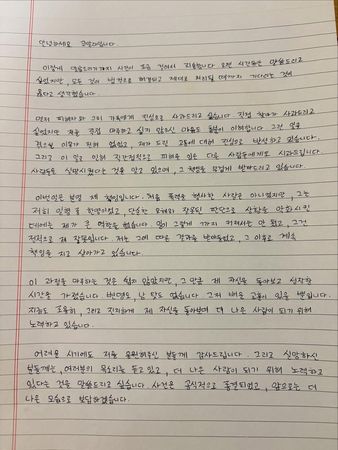 안녕하세요 크리스입니다.
이렇게 말씀드리기까지 시간이 조금 걸려서 죄송합니다. 오랜 시간동안 말씀드리고
싶었지만, 모든 것이 법적으로 해결되고 제대로 처리될 때까지 기다리는 것이
옳다고 생각했습니다.
먼저 피해자와 그의 가족에게 진심으로 사과드리고 싶습니다. 직접 찾아가 사과드리고
싶었지만 저를 직접 마주하고 싶지 않으신 마음도 충분히 이해합니다. 그런 일을
겪으실 이유가 전혀 없었고, 제가 드린 고통에 대해 진심으로 반성하고 있습니다.
그리고 이 일로 인해 직간접적으로 피해를 입은 다른 사람들에게도 사과드립니다.
사람들을 실망시켰다는 것을 알고 있으며, 그 책임을 무겁게 받아들이고 있습니다.
이번일은 분명 제 책임입니다. 처음 폭력을 행사한 사람은 아니었지만, 그는
저희 일행 중 한명이었고, 단순한 오해와 잘못된 판단으로 상황을 악화시킨
데에는 제가 큰 역할을 했습니다. 일이 그렇게 까지 커져서는 안 됐고, 그건
전적으로 제 잘못입니다. 저는 그에 따른 결과를 받아들였고, 그 이후로 계속
책임을 지고 살아가고 있습니다.
이 과정을 마주하는 것은 쉽지 않았지만, 그 만큼 제 자신을 돌아보고 성장할
시간을 가졌습니다. 변명도, 남 탓도 없습니다. 그저 배울 교훈이 있을 뿐입니다.
지금도 조용히, 그리고 진지하게 제 자신을 돌아보며 더 나은 사람이 되기 위해
노력하고 있습니다.
어려운 시기에도 저를 응원해주신 분들께 감사드립니다. 그리고 실망하신
분들께는, 여러분의 목소리를 듣고 있고, 더 나은 사람이 되기 위해 노력하고
있다는 것을 말씀드리고 싶습니다. 사건은 공식적으로 종결되었고, 앞으로는 더
나은 모습으로 보답하겠습니다.